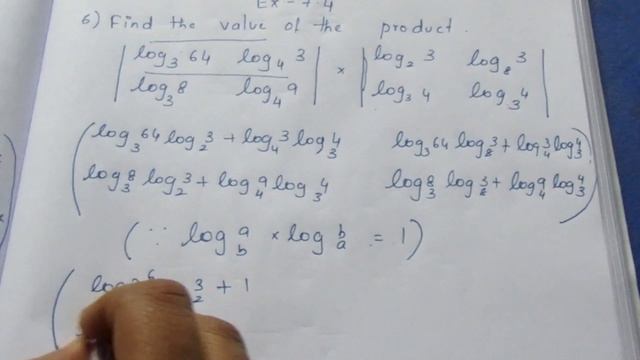 Ex - 7.4
6) Find the value of the product.
| log₃ 64 log₄ 3 | × | log₂ 3 log₈ 3 |
| log₃ 8 log₄ 9 | | log₃ 4 log₃ 4 |
( log₃ 64 log₂ 3 + log₄ 3 log₃ 4 log₃ 64 log₈ 3 + log₄ 3 log₃ 4 )
( log₃ 8 log₂ 3 + log₄ 9 log₃ 4 log₃ 8 log₈ 3 + log₄ 9 log₃ 4 )
( ∵ log_b a × log_a b = 1 )
( log 2⁶ 3 2 + 1